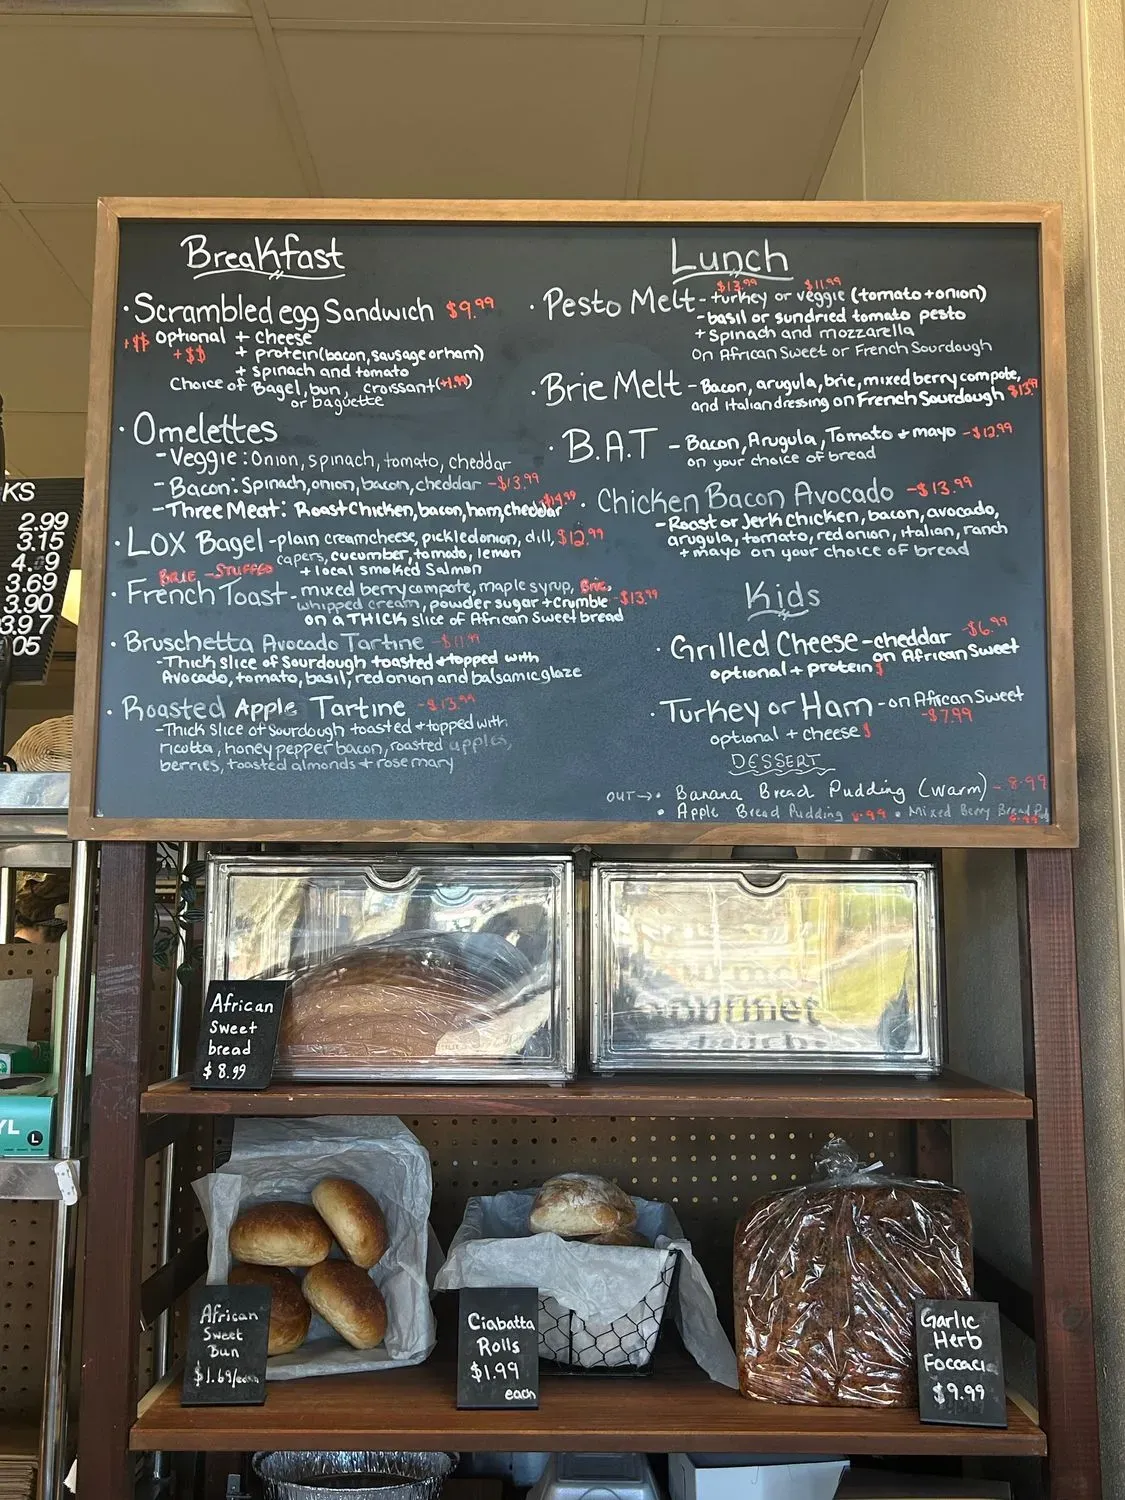 Breakfast
· Scrambled egg Sandwich $9.99
+$ optional + cheese
+$$ + protein (bacon, sausage or ham)
+ spinach and tomato
Choice of Bagel, bun, croissant (+1.99)
or baguette
· Omelettes
- Veggie: Onion, spinach, tomato, cheddar
- Bacon: Spinach, onion, bacon, cheddar - $13.99
- Three Meat: Roast Chicken, bacon, ham, cheddar $14.99
· Lox Bagel - plain creamcheese, pickled onion, dill, $12.99
capers, cucumber, tomato, lemon
+ local smoked Salmon
BRIE - STUFFED
· French Toast - mixed berry compote, maple syrup, Brie,
whipped cream, powder sugar + crumble - $13.99
on a THICK slice of African Sweet bread
· Bruschetta Avocado Tartine - $11.99
- Thick slice of sourdough toasted + topped with
Avocado, tomato, basil, red onion and balsamic glaze
· Roasted Apple Tartine - $13.99
- Thick slice of sourdough toasted + topped with
ricotta, honey pepper bacon, roasted apples,
berries, toasted almonds + rosemary
Lunch
$13.99 $11.99
· Pesto Melt - turkey or veggie (tomato + onion)
- basil or sundried tomato pesto
+ Spinach and mozzarella
On African Sweet or French Sourdough
· Brie Melt - Bacon, arugula, brie, mixed berry compote,
and italian dressing on French Sourdough $13.99
· B.A.T - Bacon, Arugula, Tomato + mayo - $12.99
on your choice of bread
· Chicken Bacon Avocado - $13.99
- Roast or Jerk Chicken, bacon, avocado,
arugula, tomato, red onion, italian, ranch
+ mayo on your choice of bread
Kids
· Grilled Cheese - cheddar - $6.99
on African Sweet
optional + protein $
· Turkey or Ham - on African Sweet
- $7.99
optional + cheese $
DESSERT
OUT → · Banana Bread Pudding (warm) - 8.99
· Apple Bread Pudding 8.99 · Mixed Berry Bread
KS
2.99
3.15
3.69
3.90
3.97
05
African
Sweet
bread
$8.99
YL
L
African
Sweet
Bun
$1.69/each
Ciabatta
Rolls
$1.99
each
Garlic
Herb
Foccaci
$9.99